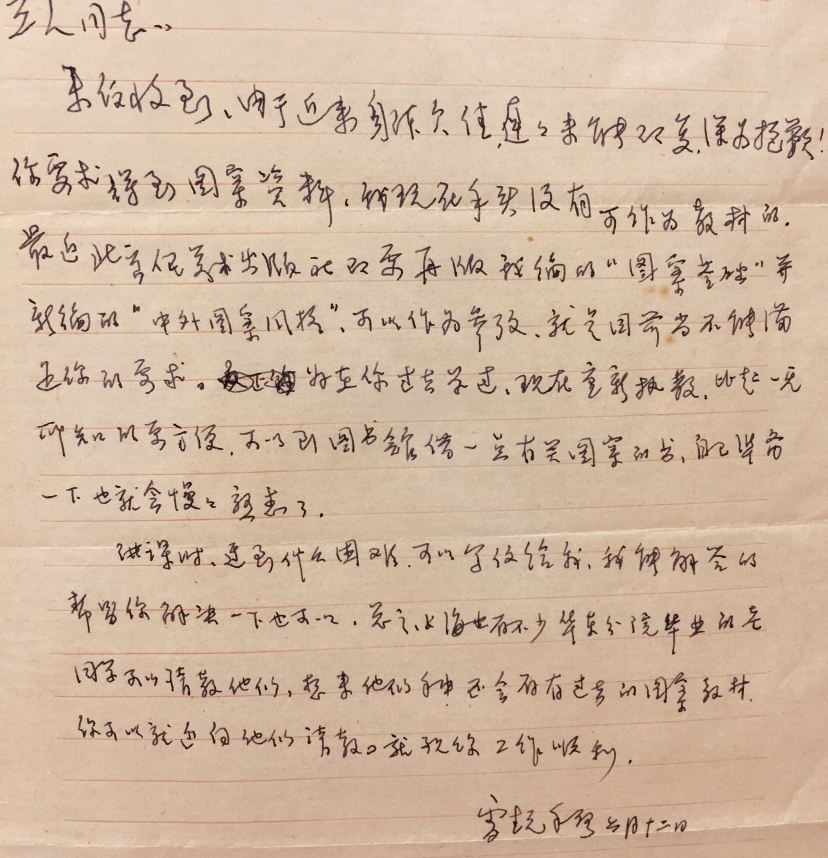 立人同志：
来信收到、由于近来身体欠佳，迟々未能即复，深为抱歉！
你要求得到图案资料，我现在手头没有可作为教材的．
最近北京人民美术出版社即要再版我编的“图案基础”并
新编的“中外图案风格”，可以作为参考、就是目前尚不能满
足你的要求。好在你过去学过、现在重新执教，比起一无
所知的要方便，可以到图书馆借一些有关图案的书，自己准备
一下也就会慢々熟悉了．
讲课时、遇到什么困难．可以写信给我，我能解答的
帮留你解决一下也可以．总之，上海也有不少华东分院毕业的老
同学可以请教他们，想来他们手中还会存有过去的图案教材．
你可以就近向他们请教。就祝你工作顺利．
雷圭元 手 六月十二日